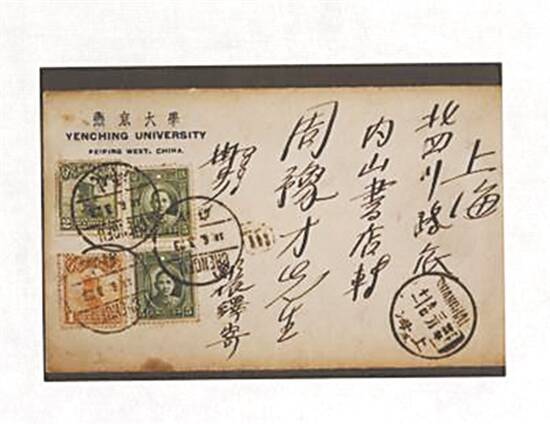 上海
北四川路底
内山書店轉
周豫才先生
鄭振鐸寄
燕京大學
YENCHING UNIVERSITY
PEIPING WEST, CHINA.
CHENGFU
CHENGFU
SHANGHAI
上海